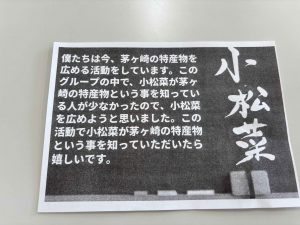 小松菜
僕たちは今、茅ヶ崎の特産物を
広める活動をしています。この
グループの中で、小松菜が茅ヶ
崎の特産物という事を知ってい
る人が少なかったので、小松菜
を広めようと思いました。この
活動で小松菜が茅ヶ崎の特産物
という事を知っていただいたら
嬉しいです。